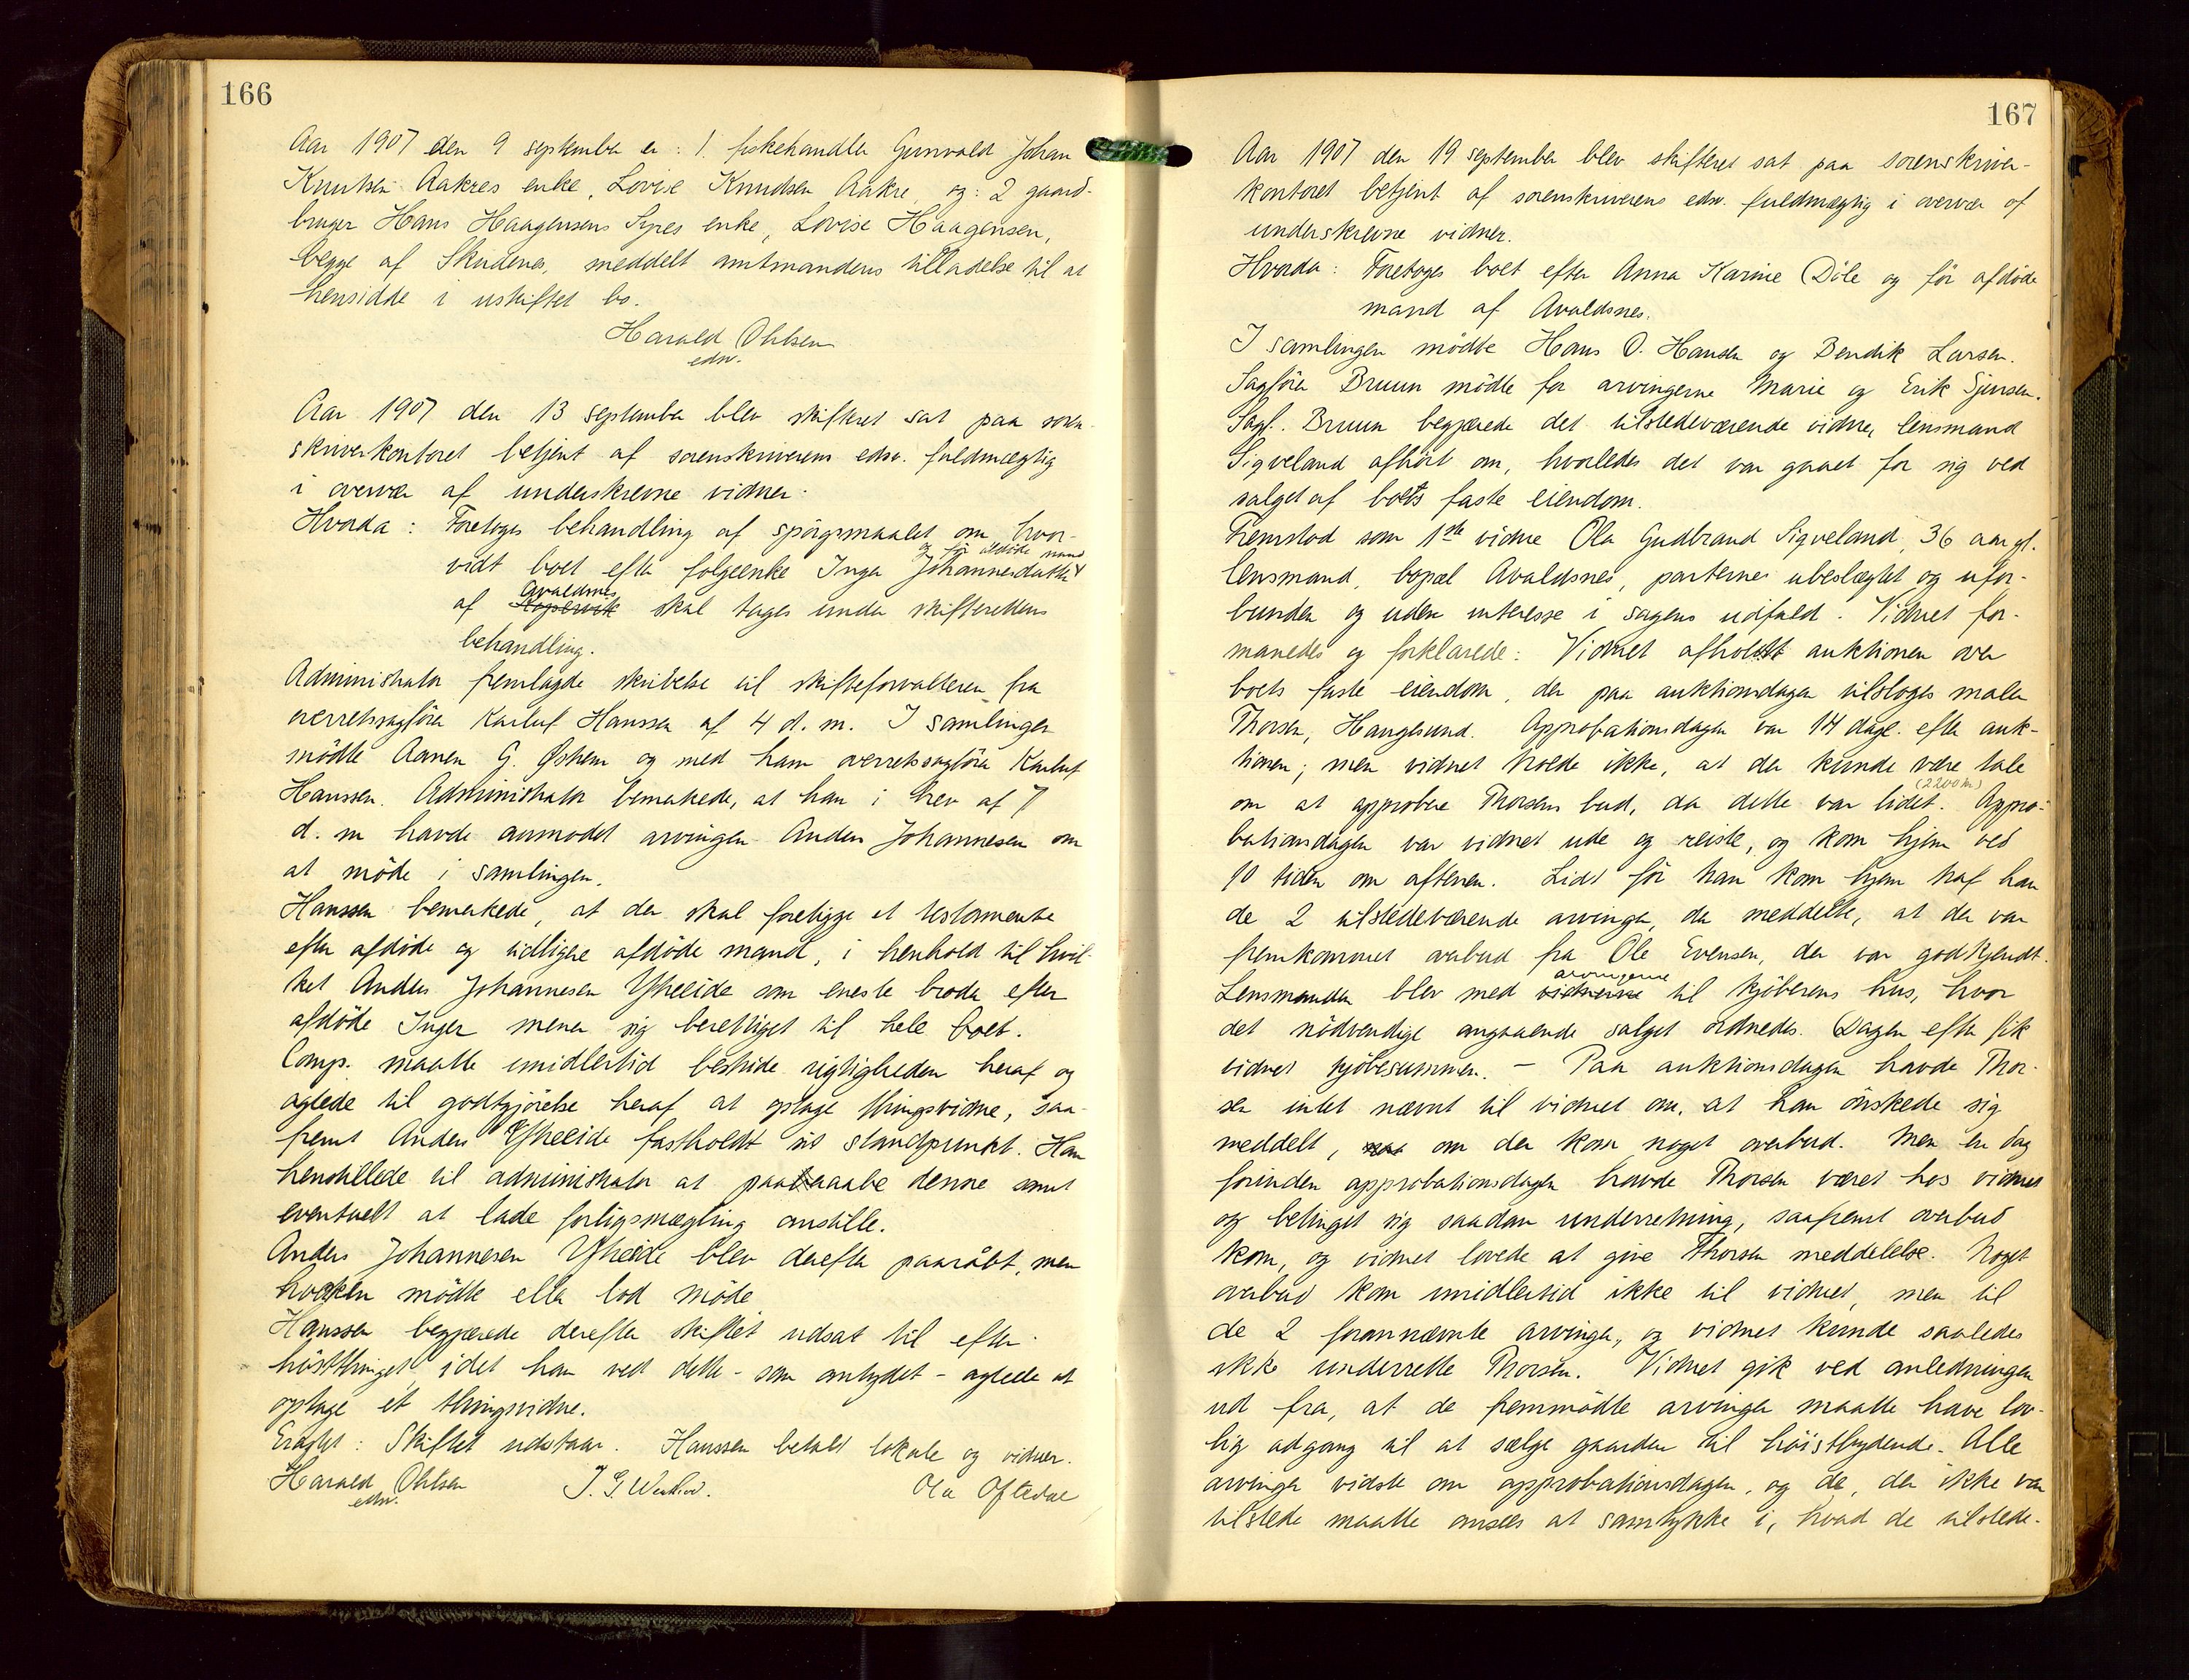 166
Aar 1907 den 9 september er: 1. fiskehandler Gunvald Johan
Knutsen Aakres enke, Lovise Knudsen Aakre, og: 2 gaard-
bruger Hans Haagensens Syres enke, Lovise Haagensen,
begge af Skudenes, meddelt amtmandens tilladelse til at
hensidde i uskiftet bo.
Harald Ohlsen
edsv.
Aar 1907 den 13 september blev skifteret sat paa soren-
skriverkontoret betjent af sorenskriverens edsv. fuldmægtig
i overvær af underskrevne vidner.
Hvorda: Foretoges behandling af spørgsmaalet om hvor-
og før afdøde mand
vidt boet efter følgeenke Inger Johannesdatter
Avaldsnes
af Kopervik skal tages under skifterettens
behandling.
Administrator fremlagde skrivelse til skifteforvalteren fra
overretssagfører Karluf Hanssen af 4 d. m. I samlingen
mödte Aanen G. Østhem og med ham overretssagfører Karluf
Hanssen. Administrator bemerkede, at han i brev af 7
d. m havde anmodet arvingen Anders Johannesen om
at möde i samlingen.
Hanssen bemerkede, at der skal foreligge et testamente
efter afdöde og tidligere afdöde mand, i henhold til hvil-
ket Anders Johannesen Ytreeide som eneste broder efter
afdöde Inger mener sig berettiget til hele boet.
Comp. maatte imidlertid bestride rigtigheden heraf og
agtede til godtgjörelse heraf at optage thingsvidne, saa-
fremt Anders Ytreeide fastholdt sit standpunkt. Han
henstillede til administrator at paaraabe denne samt
eventuelt at lade forligsmægling anstille.
Anders Johannesen Ytreeide blev derefter paaråbt, men
hverken mödte eller lod möde.
Hanssen begjærede derefter skiftet udsat til efter
höstthinget idet han ved dette – som antydet – agtede at
optage et thingsvidne.
Eragtet: Skiftet udstaar. Hanssen betalt lokale og vidner.
Harald Ohlsen J. G. Ola Oftedal
edsv.
167
Aar 1907 den 19 september blev skifteret sat paa sorenskriver-
kontoret betjent af sorenskriverens edsv. fuldmægtig i overvær af
underskrevne vidner.
Hvorda: Foretoges boet efter Anna Karine Döle og för afdöde
mand af Avaldsnes.
I samlingen mödte Hans O. Hansen og Bendik Larsen.
Sagförer Bruun mödte for arvingerne Marie og Erik Sjursen.
Sagf. Bruun begjærede det tilstedeværende vidne, lensmand
Sigveland afhört om, hvorledes det var gaaet for sig ved
salget af boets faste eiendom.
Fremstod som 1ste vidne Ola Gudbrand Sigveland, 36 aar gl.
lensmand, bopæl Avaldsnes, parterne ubeslægtet og ufor-
bunden og uden interesse i sagens udfald. Vidnet for-
manedes og forklarede: Vidnet afholdt auktionen over
boets faste eiendom, der paa auktionsdagen tilsloges maler
Thorsen, Haugesund. Approbationsdagen var 14 dage efter auk-
tionen; men vidnet troede ikke, at der kunde være tale
(2200 kr)
om at approbere Thorsens bud, da dette var lidet. Appro-
bationsdagen var vidnet ude og reiste, og kom hjem ved
10 tiden om aftenen. Lidt för han kom hjem traf han
de 2 tilstedeværende arvinger, der meddelte, at der var
fremkommet overbud fra Ole Evensen, der var godkjendt.
arvingerne
Lensmanden blev med vidnerne til kjöberens hus, hvor
det nödvendige angaaende salget ordnedes. Dagen efter fik
vidnet kjöbesummen. – Paa auktionsdagen havde Thor-
sen intet nævnt til vidnet om, at han önskede sig
meddelt, om der kom noget overbud. Men en dag
forinden approbationsdagen havde Thorsen været hos vidnet
og betinget sig saadan underretning, saafremt overbud
kom, og vidnet lovede at give Thorsen meddelelse. Noget
overbud kom imidlertid ikke til vidnet, men til
de 2 forannævnte arvinger, og vidnet kunde saaledes
ikke underrette Thorsen. Vidnet gik ved anledningen
ud fra, at de fremmödte arvinger maatte have lov-
lig adgang til at sælge gaarden til höistbydende. Alle
arvinger vidste om approbationsdagen, og de, der ikke var
tilstede maatte ansees at samtykke i, hvad de tilstede-